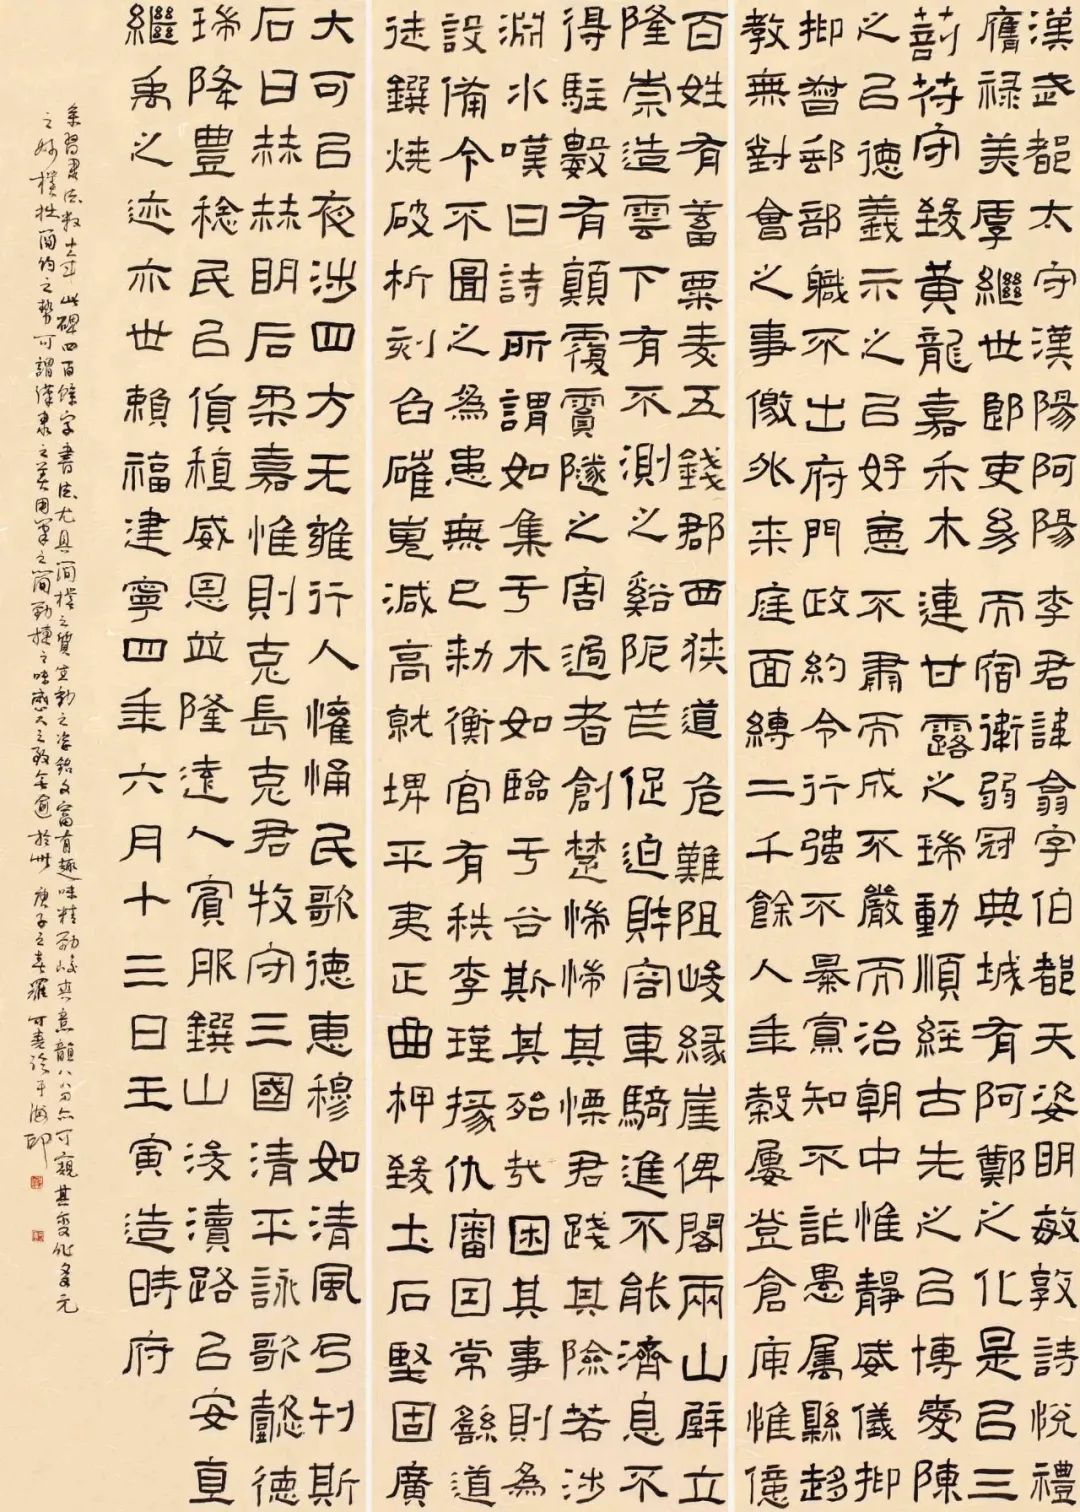 漢武都太守漢陽阿陽李君諱翕字伯都天姿明敏敦詩悅禮
膺祿美厚繼世郎吏幼而宿衛弱冠典城有阿鄭之化是㠯三
剖符守致黃龍嘉禾木連甘露之瑞動順經古先之㠯博愛陳
之㠯德義示之㠯好惡不肅而成不嚴而治朝中惟靜威儀抑
抑督郵部職不出府門政約令行強不暴寡知不詐愚属縣趍
教無對會之事儌外来庭面縛二千餘人年穀屢登倉庾惟億
百姓有蓄粟麦五錢郡西狹道危難阻峻緣崖俾閣兩山壁立
隆崇造雲下有不測之谿阨芒促迫財容車騎進不能濟息不
得駐數有顛覆霣隧之害過者創楚惴惴其慄君踐其險若涉
淵水嘆曰詩所謂如集于木如臨于谷斯其殆哉困其事則為
設備今不圖之為患無已勑衡官有秩李瑾掾仇審因常繇道
徒鐉燒破析刻臽磪嵬減高就埤平夷正曲柙致土石堅固廣
大可㠯夜涉四方无雍行人懽悀民歌德惠穆如清風乃刊斯
石曰赫赫明后柔嘉惟則克長克君牧守三國清平詠歌懿德
瑞降豐稔民㠯貨稙威恩並隆遠人賓服鐉山浚瀆路㠯安直
繼禹之迹亦世賴福建寧四年六月十三日壬寅造時府
余習隸法數十年此碑四百餘字書法尤具簡樸之質宕動之姿銘文富有趣味精勁峻爽意韻八分亦可窺其變化多元
之妙樸拙簡約之勢可謂漢隸之美用筆之簡勁捷之味感人之致無逾於此庚子之春羅可